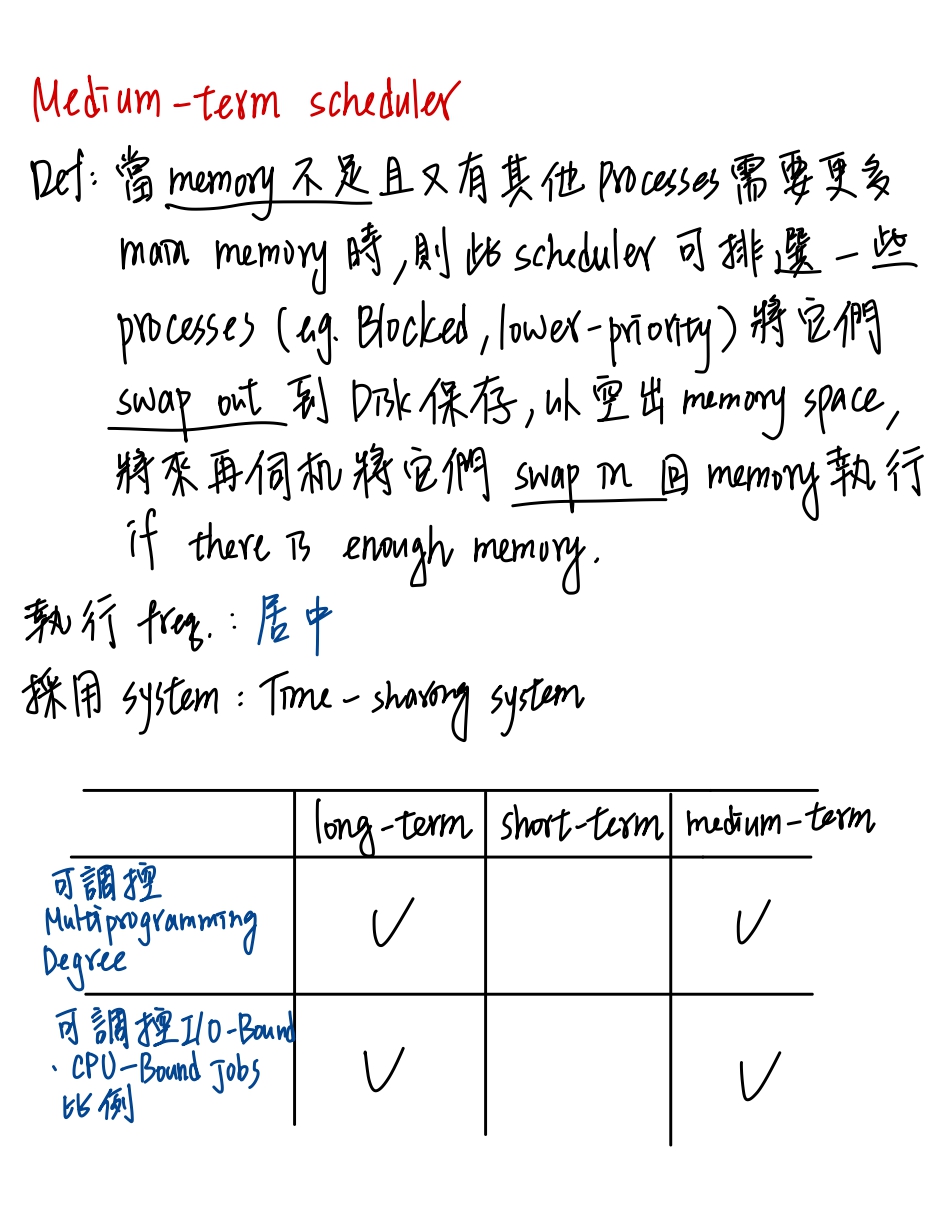 Medium-term scheduler
Def: 當 memory 不足且又有其他 processes 需要更多
main memory 時,則此 scheduler 可排選一些
processes (e.g. Blocked, lower-priority) 將它們
swap out 到 Disk 保存,以空出 memory space,
將來再伺机將它們 swap in 回 memory 執行
if there is enough memory.
執行 freq. : 居中
採用 system : Time-sharing system
long-term short-term medium-term
可調控
Multiprogramming
Degree
✓ ✓
可調控 I/O-Bound
、CPU-Bound Jobs
比例
✓ ✓